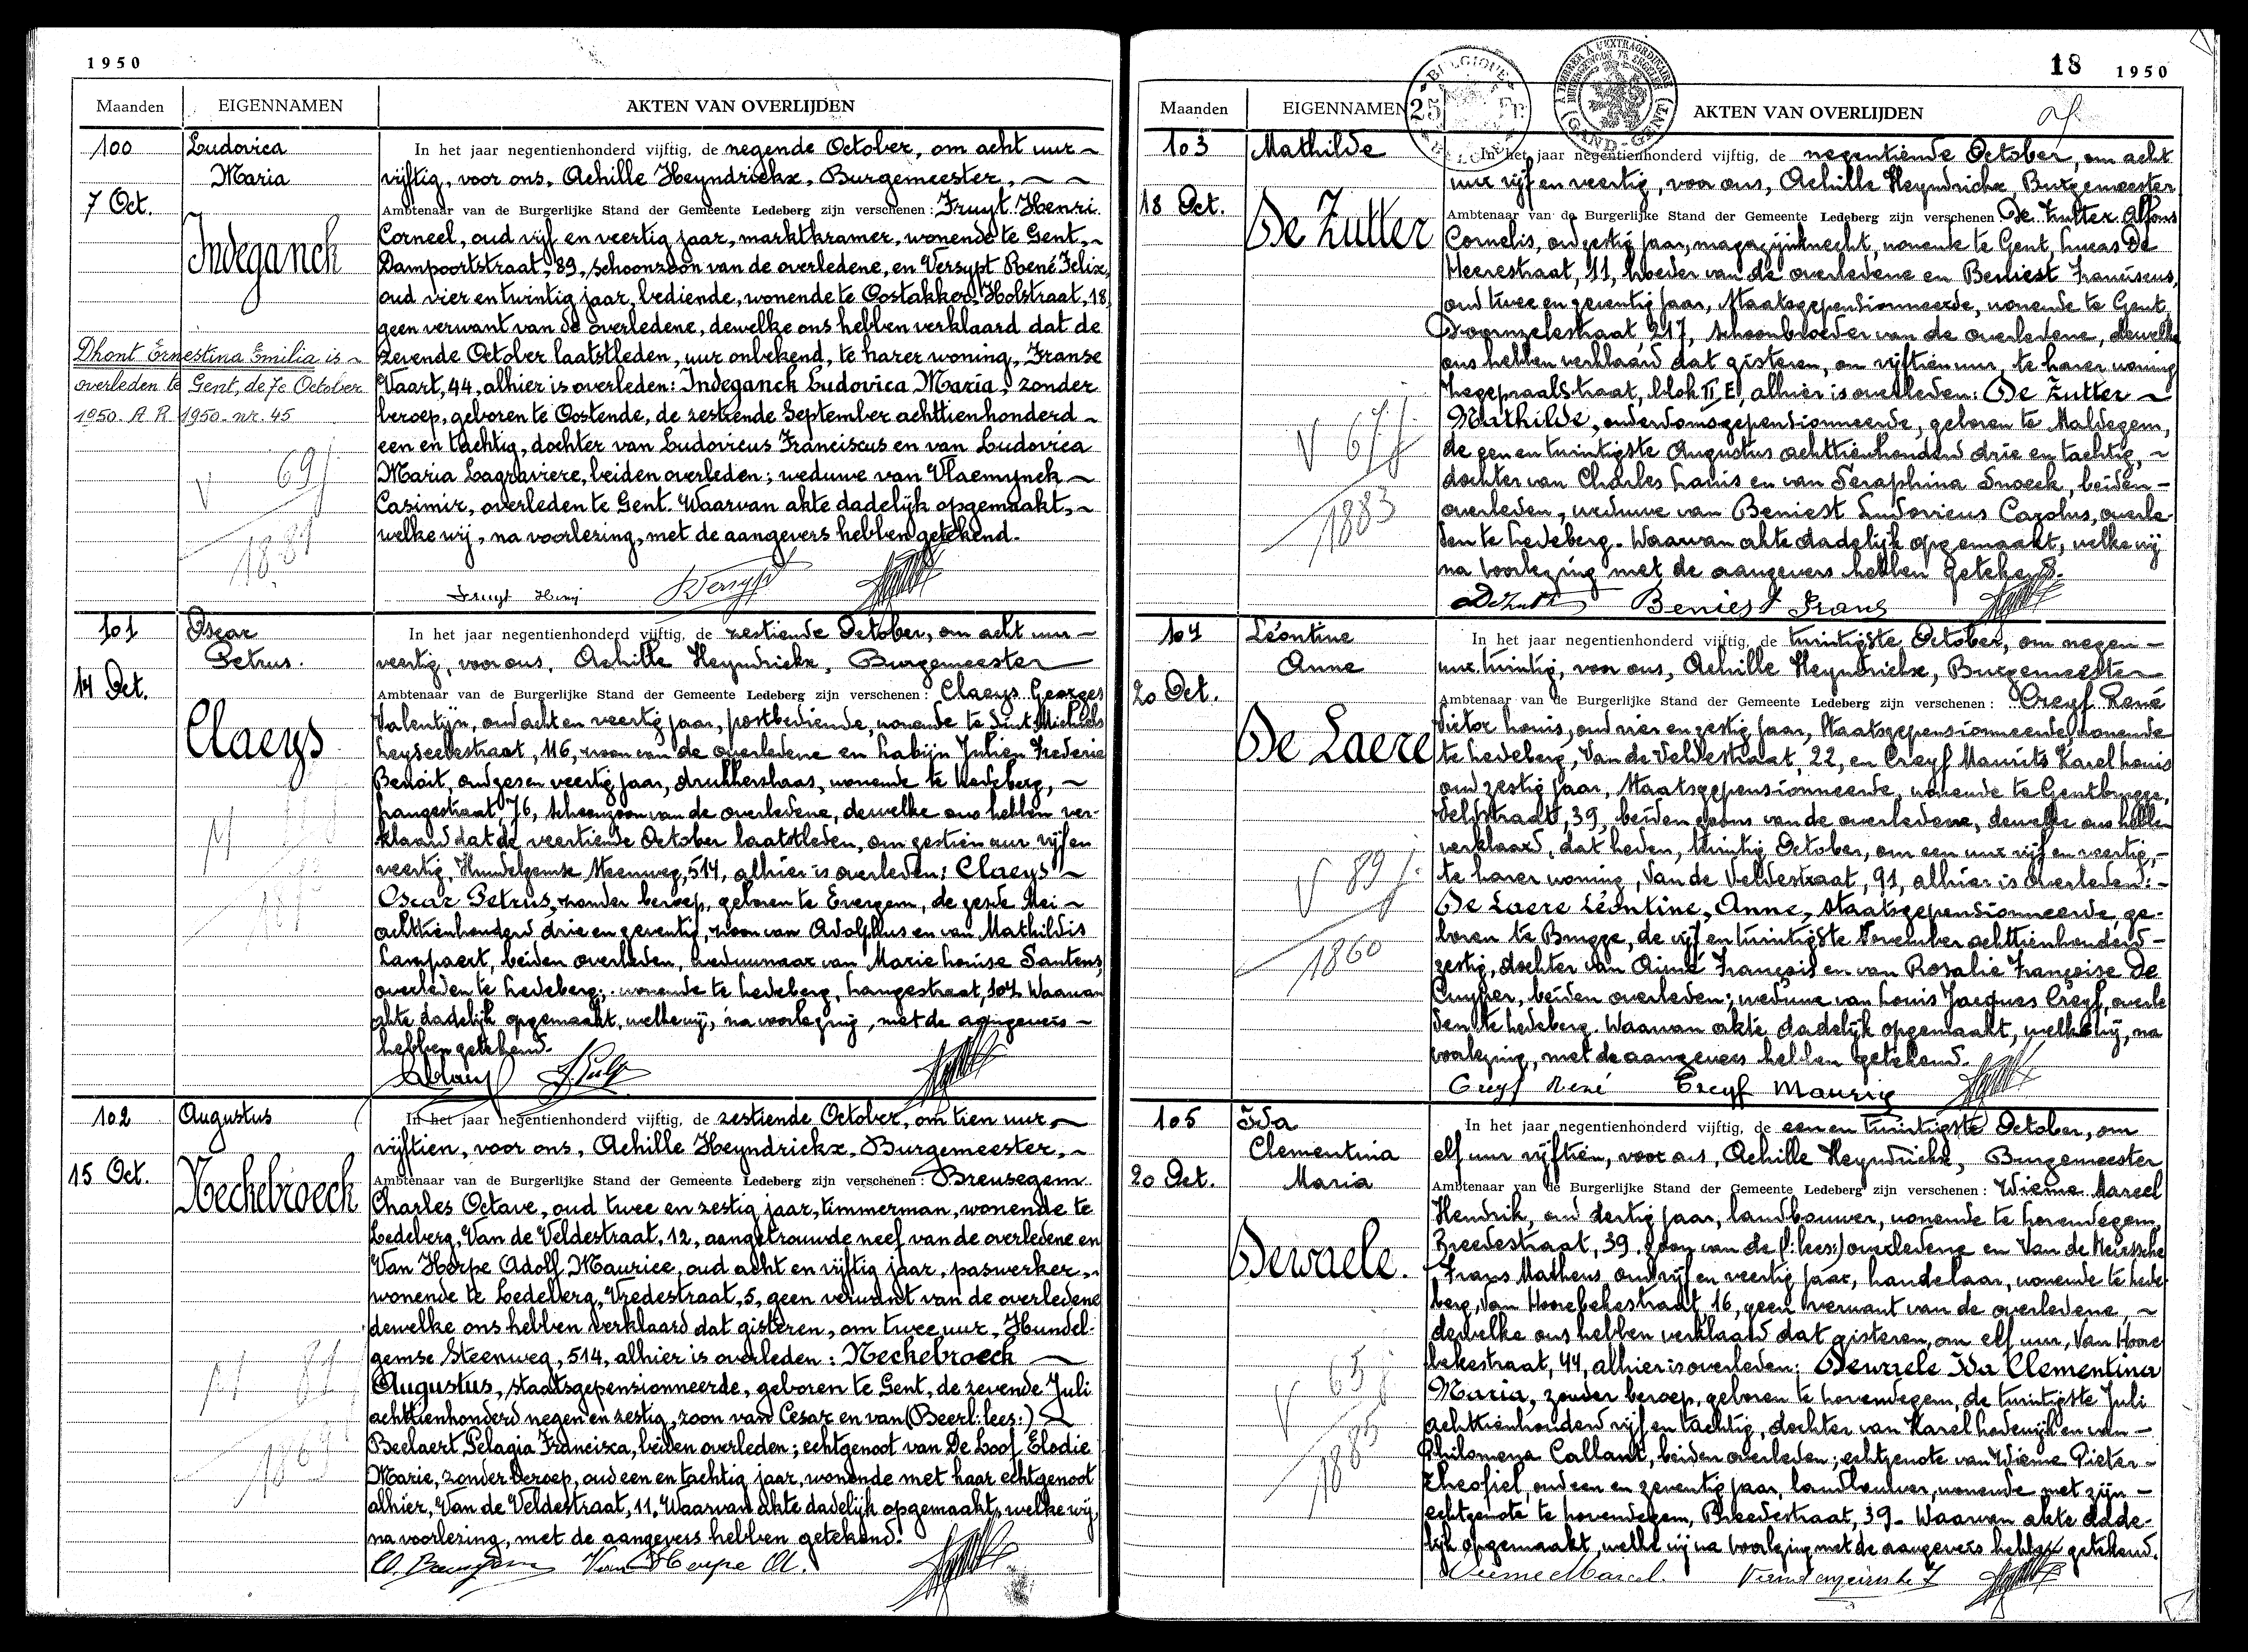 1950
Maanden EIGENNAMEN AKTEN VAN OVERLIJDEN
100
7 Oct.
Ludovica
Maria
Indeganck
Dhont Ernestina Emilia is ~
overleden te Gent, de 7e October
1950. A.R. 1950. nr. 45
V 69 j
1881
In het jaar negentienhonderd vijftig, de negende October, om acht uur ~
vijftig, voor ons, Achille Heyndrickx, Burgemeester, ~ ~
Ambtenaar van de Burgerlijke Stand der Gemeente Ledeberg zijn verschenen: Fruyt Henri
Corneel, oud vijf en veertig jaar, marktkramer, wonende te Gent, ~
Dampoortstraat, 89, schoonzoon van de overledene, en Versypt René Felix,
oud vier en twintig jaar, bediende, wonende te Oostakker, Holstraat, 18,
geen verwant van de overledene, dewelke ons hebben verklaard dat de
zevende October laatstleden, uur onbekend, te harer woning, Franse
Vaart, 44, alhier is overleden: Indeganck Ludovica Maria, zonder
beroep, geboren te Oostende, de zestiende September achttienhonderd ~
een en tachtig, dochter van Ludovicus Franciscus en van Ludovica
Maria Lagraviere, beiden overleden; weduwe van Vlaemynck ~
Casimir, overleden te Gent. Waarvan akte dadelijk opgemaakt, ~
welke wij, na voorlezing, met de aangevers hebben getekend.
Fruyt Henri Versypt
101
14 Oct.
Oscar
Petrus.
Claeys
M
In het jaar negentienhonderd vijftig, de zestiende October, om acht uur ~
veertig, voor ons, Achille Heyndrickx, Burgemeester
Ambtenaar van de Burgerlijke Stand der Gemeente Ledeberg zijn verschenen: Claeys Georges
Valentijn, oud acht en veertig jaar, postbediende, wonende te Sint Michiels
Leyseelestraat, 116, zoon van de overledene en Labijn Julien Frederic
Benoit, oud zes en veertig jaar, drukkersbaas, wonende te Ledeberg, ~
Langestraat, 76, schoonzoon van de overledene, dewelke ons hebben ver-
klaard dat de veertiende October laatstleden, om zestien uur vijf en
veertig, Hundelgemse Steenweg, 514, alhier is overleden: Claeys ~
Oscar Petrus, zonder beroep, geboren te Evergem, de zesde Mei ~
achttienhonderd drie en zeventig, zoon van Adolphus en van Mathildis
Lampaert, beiden overleden, weduwnaar van Marie Louise Santens,
overleden te Ledeberg; wonende te Ledeberg, Langestraat, 104. Waarvan
akte dadelijk opgemaakt, welke wij, na voorlezing, met de aangevers ~
hebben getekend.
102
15 Oct.
Augustus
Neckebroeck
M 81 j
1869
In het jaar negentienhonderd vijftig, de zestiende October, om tien uur, ~
vijftien, voor ons, Achille Heyndrickx, Burgemeester, ~
Ambtenaar van de Burgerlijke Stand der Gemeente Ledeberg zijn verschenen: Breusegem
Charles Octave, oud twee en zestig jaar, timmerman, wonende te
Ledeberg, Van de Veldestraat, 12, aangetrouwde neef van de overledene en
Van Herpe Adolf Maurice, oud acht en vijftig jaar, paswerker, ~
wonende te Ledeberg, Vredestraat, 5, geen verwant van de overledene
dewelke ons hebben verklaard dat gisteren, om twee uur, Hundel-
gemse Steenweg, 514, alhier is overleden: Neckebroeck
Augustus, staatsgepensionneerde, geboren te Gent, de zevende Juli
achttienhonderd negen en zestig, zoon van Cesar en van (Beerl: lees:)
Beelaert Pelagia Francisca, beiden overleden; echtgenoot van De Loof Elodie
Marie, zonder beroep, oud een en tachtig jaar, wonende met haar echtgenoot
alhier, Van de Veldestraat, 11. Waarvan akte dadelijk opgemaakt, welke wij,
na voorlezing, met de aangevers hebben getekend.
Van Herpe A.
18 1950
BELGIQUE 25 Fr.
Maanden EIGENNAMEN AKTEN VAN OVERLIJDEN
103
18 Oct.
Mathilde
De Zutter
V 67 j.
1883
In het jaar negentienhonderd vijftig, de negentiende October, om acht
uur vijf en veertig, voor ons, Achille Heyndrickx, Burgemeester
Ambtenaar van de Burgerlijke Stand der Gemeente Ledeberg zijn verschenen De Zutter Alfons
Cornelis, oud zestig jaar, magazijnknecht, wonende te Gent, Lucas De
Heerestraat, 11, broeder van de overledene en Beniest Franciscus,
oud twee en zeventig jaar, Staatsgepensionneerde, wonende te Gent,
Doornzelestraat, 217, schoonbroeder van de overledene, dewelke
ons hebben verklaard dat gisteren, om vijftien uur, te harer woning
Zegepraalstraat, blok II E, alhier is overleden: De Zutter ~
Mathilde, ouderdomsgepensionneerde, geboren te Maldegem,
de zes en twintigste Augustus achttienhonderd drie en tachtig, ~
dochter van Charles Louis en van Seraphina Snoeck, beiden -
overleden, weduwe van Beniest Ludovicus Carolus, overle-
den te Ledeberg. Waarvan akte dadelijk opgemaakt, welke wij
na voorlezing met de aangevers hebben getekend.
Beniest Frans
104
20 Oct.
Léontine
Anne
De Laere
V 89 j.
1860
In het jaar negentienhonderd vijftig, de twintigste October, om negen -
uur twintig, voor ons, Achille Heyndrickx, Burgemeester
Ambtenaar van de Burgerlijke Stand der Gemeente Ledeberg zijn verschenen: Creyf René
Victor Louis, oud vier en zestig jaar, Staatsgepensionneerde, wonende
te Ledeberg, Van de Veldestraat, 22, en Creyf Maurits Karel Louis
oud zestig jaar, Staatsgepensionneerde, wonende te Gentbrugge,
Delfstraat, 39, beiden zoons van de overledene, dewelke ons hebben
verklaard, dat heden, twintig October, om een uur vijf en veertig, -
te harer woning, Van de Veldestraat, 91, alhier is overleden: -
De Laere Léontine, Anne, staatsgepensionneerde, ge-
boren te Brugge, de vijf en twintigste November achttienhonderd -
zestig, dochter van Aimé François en van Rosalie Françoise De
Cuyper, beiden overleden; weduwe van Louis Jacques Creyf, overle
den te Ledeberg. Waarvan akte dadelijk opgemaakt, welke wij, na
voorlezing, met de aangevers hebben getekend.
Creyf René Creyf Maurits
105
20 Oct.
Ida
Clementina
Maria
Dewaele.
V 65 j
1885
In het jaar negentienhonderd vijftig, de een en twintigste October, om
elf uur vijftien, voor ons, Achille Heyndrickx, Burgemeester
Ambtenaar van de Burgerlijke Stand der Gemeente Ledeberg zijn verschenen: Wieme Marcel
Hendrik, oud dertig jaar, landbouwer, wonende te Lovendegem,
Breedestraat, 39, zoon van de (: lees:) overledene en Van de Neirssche
Frans Matheus, oud vijf en veertig jaar, handelaar, wonende te Lede-
berg, Van Hoorebekestraat, 16, geen verwant van de overledene, ~
dewelke ons hebben verklaard dat gisteren, om elf uur, Van Hoore
bekestraat, 44, alhier is overleden: Dewaele Ida Clementina
Maria, zonder beroep, geboren te Lovendegem, de twintigste Juli
achttienhonderd vijf en tachtig, dochter van Karel Lodewijk en van -
Philomena Callant, beiden overleden; echtgenote van Wieme Pieter -
Theofiel, oud een en zeventig jaar, landbouwer, wonende met zijn -
echtgenote te Lovendegem, Breedestraat, 39. Waarvan akte dade-
lijk opgemaakt, welke wij na voorlezing met de aangevers hebben getekend.
Wieme Marcel.